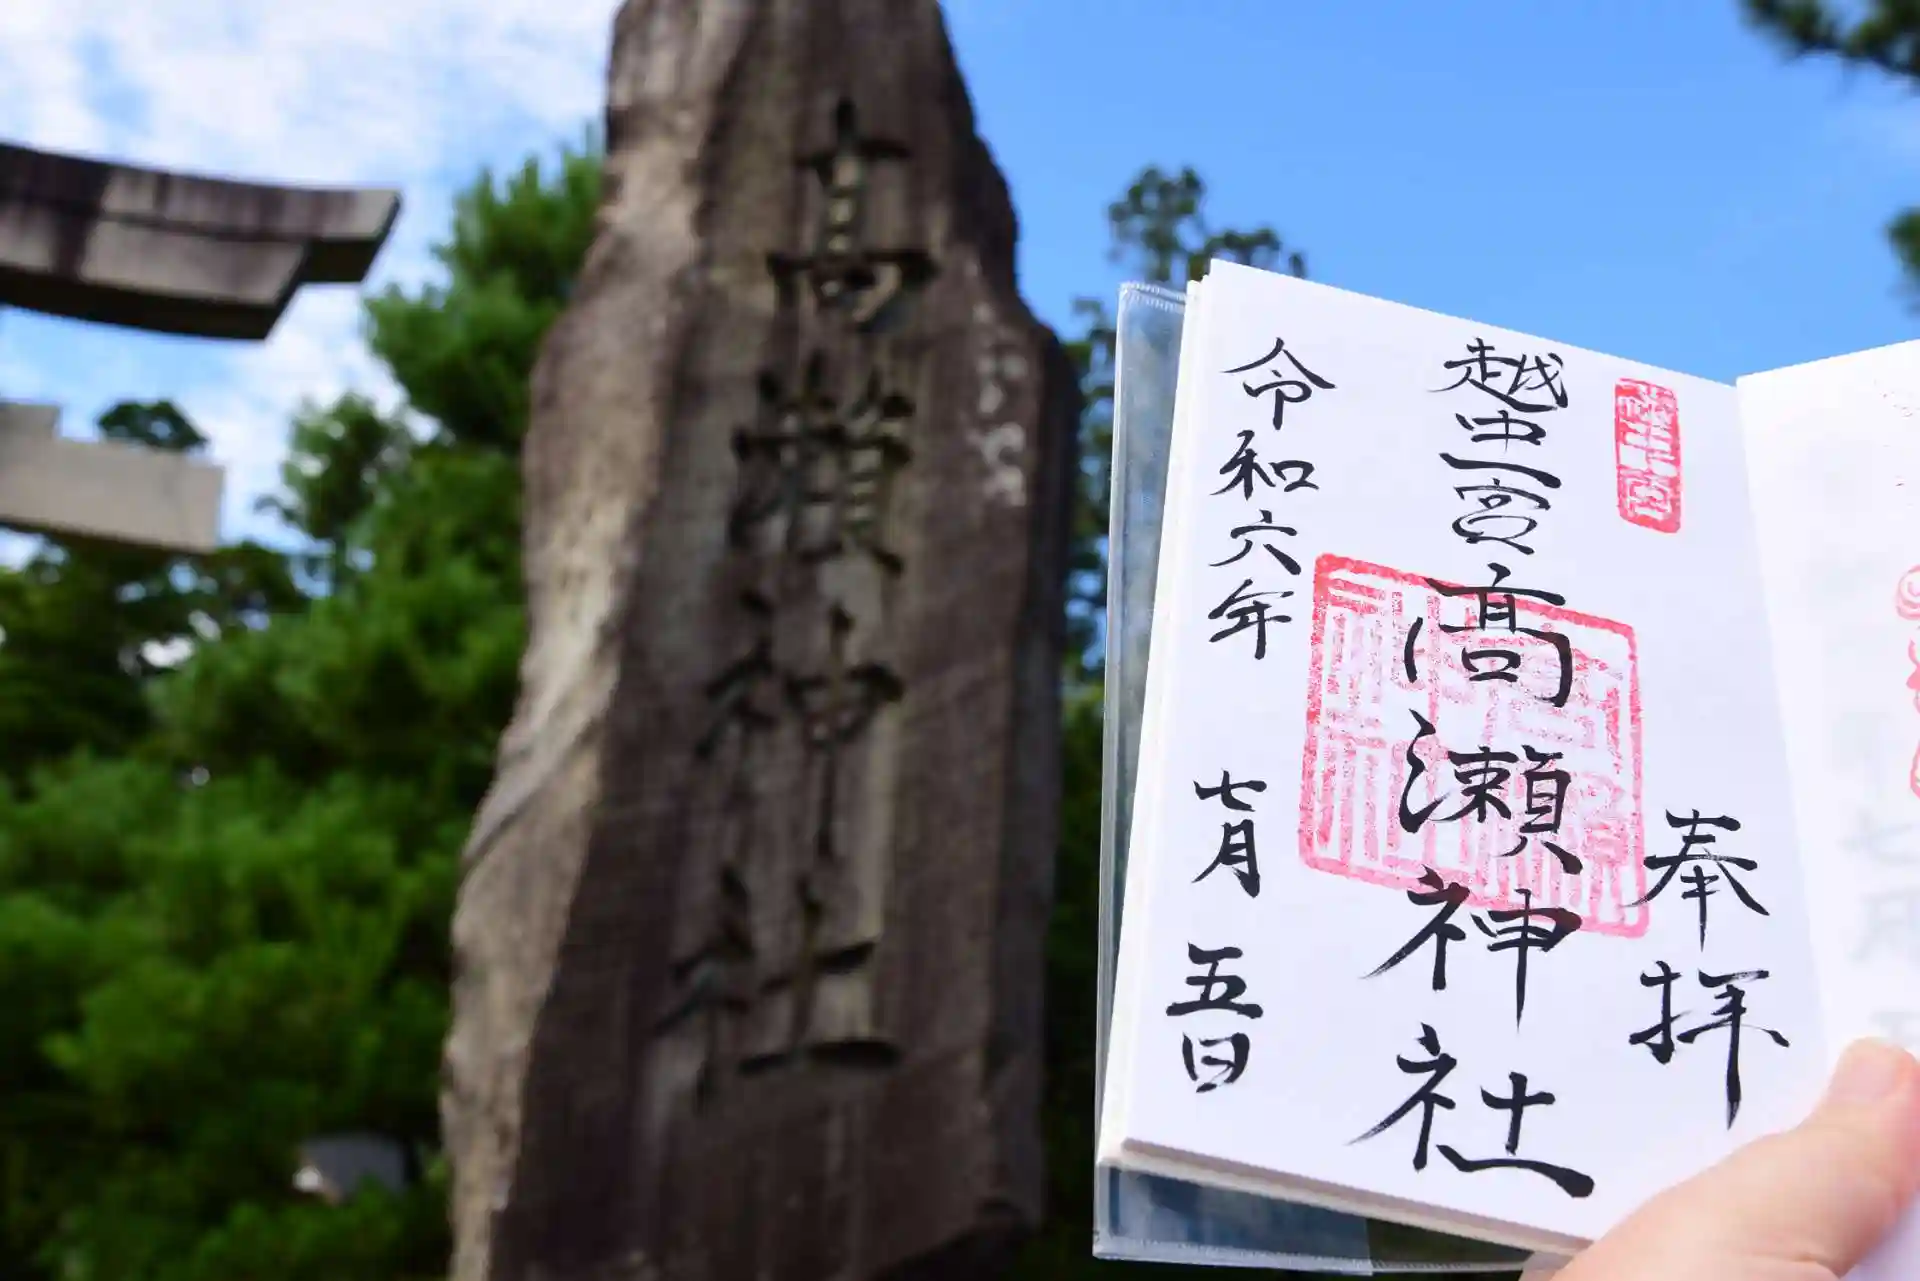 高瀬神社
奉拝
越中一宮
高瀬神社
令和六年
七月
五日